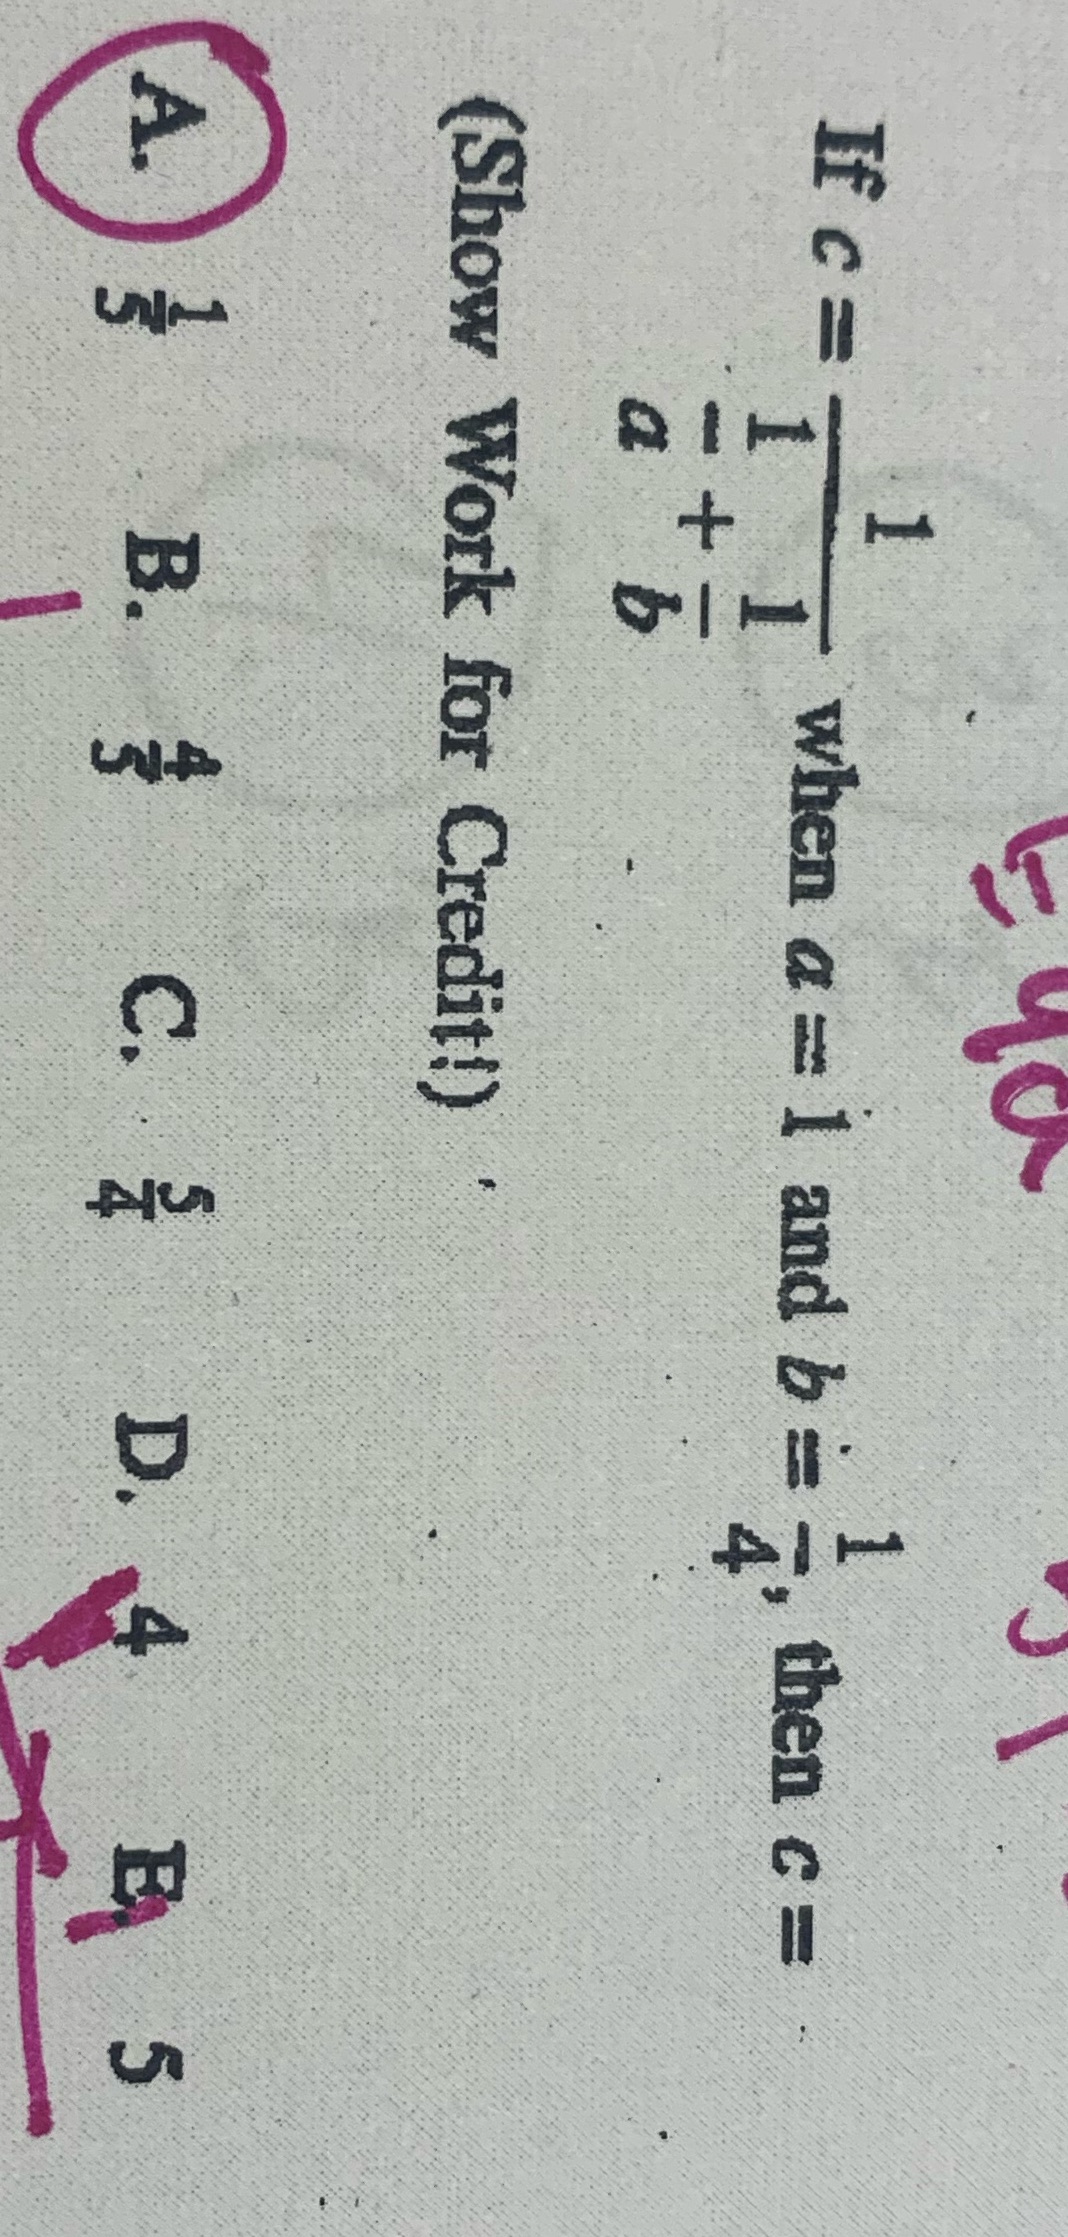 If c = 1 / (1/a + 1/b) when a = 1 and b = 1/4, then c =
(Show Work for Credit!)
A. 1/5 B. 4/5 C. 5/4 D. 4 E. 5